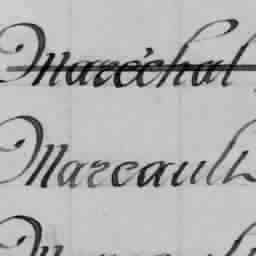 Maréchal
Marcault